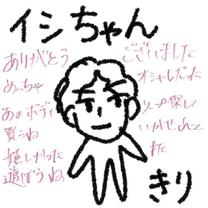 イシちゃん
ありがとう
ございました
めっちゃ
オシャレだった
あのボディ
ソープ探し
買うね
いかせん
た
嬉しかった
遊ぼうね
きり